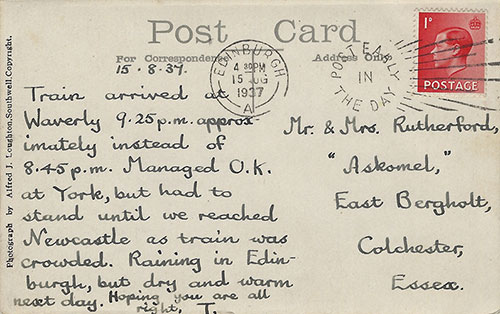 Post Card
For Correspondence
Address Only
15.8.37.
Train arrived at
Waverly 9.25p.m. approx
imately instead of
8.45p.m. Managed O.K.
at York, but had to
stand until we reached
Newcastle as train was
crowded. Raining in Edin-
burgh, but dry and warm
next day. Hoping you are all
right, T.
EDINBURGH
4 30PM
15 AUG
1937
A
POST EARLY
IN
THE DAY
1D
POSTAGE
Mr. & Mrs. Rutherford,
"Askomel,"
East Bergholt,
Colchester,
Essex.
Photograph by Alfred J. Loughton, Southwell, Copyright.